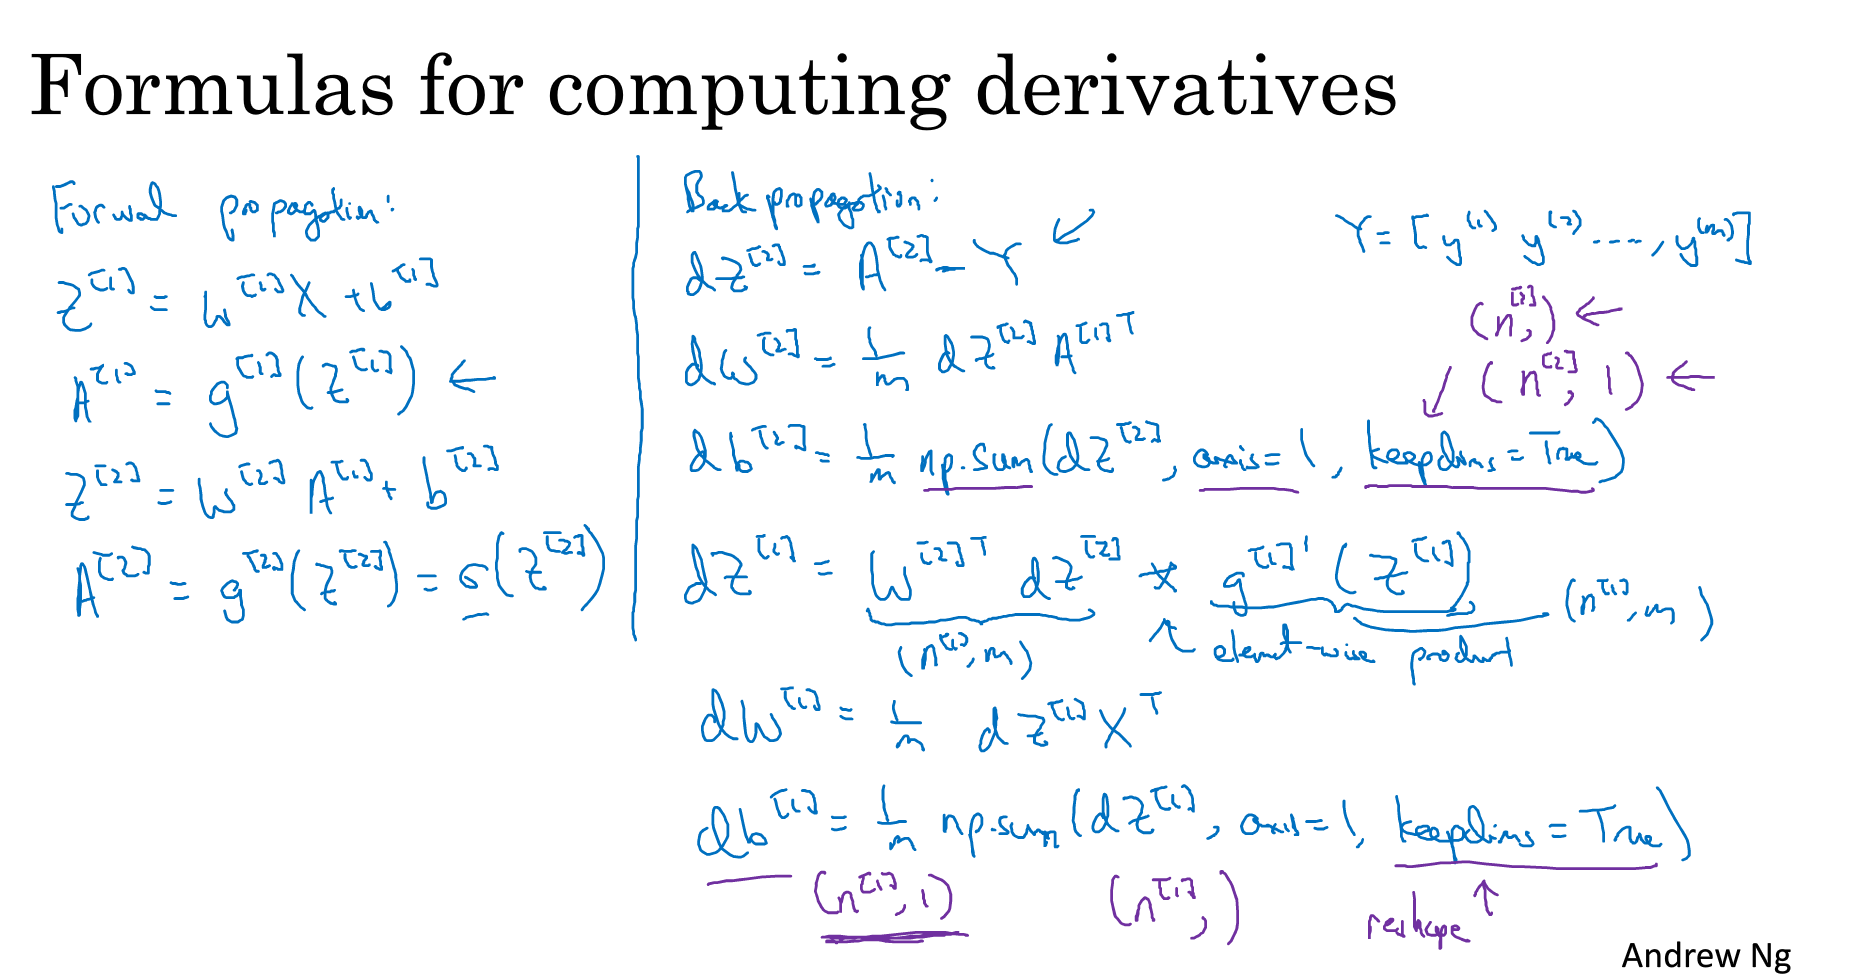 Formulas for computing derivatives
Forward propagation:
Z^[1] = W^[1]X + b^[1]
A^[1] = g^[1](Z^[1]) ←
Z^[2] = W^[2] A^[1] + b^[2]
A^[2] = g^[2](Z^[2]) = σ(Z^[2])
Back propagation:
dZ^[2] = A^[2] - Y ↙
Y = [y^(1) y^(2) ...., y^(m)]
dW^[2] = 1/m dZ^[2] A^[1]T
(n^[2],) ←
↙ (n^[2], 1) ←
db^[2] = 1/m np.sum(dZ^[2], axis=1, keepdims=True)
dZ^[1] = W^[2]T dZ^[2] * g^[1]'(Z^[1])
(n^[1], m) ↖ element-wise product (n^[1], m)
dW^[1] = 1/m dZ^[1] X^T
db^[1] = 1/m np.sum(dZ^[1], axis=1, keepdims=True)
(n^[1], 1) (n^[1],) reshape ↑
Andrew Ng